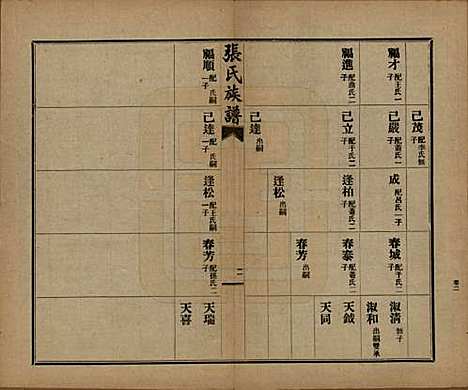 福才 配王氏二子
福進 配曲氏二子
己茂 配李氏無
己嚴 配蕭氏二子
己立 配于氏二子
己達 出嗣
成 配呂氏一子
逢柏 配蕭氏二子
逢松 出嗣
春城 配于氏二子
春泰 配蕭氏二子
春芳 出嗣
淑清 無子
淑和 出嗣雙承
天鉞
天同
張氏族譜
二
福順 配 氏嗣一子
己達 配 氏嗣一子
逢松 配王氏嗣一子
春芳 配孫氏二子
天瑞
天喜
卷二